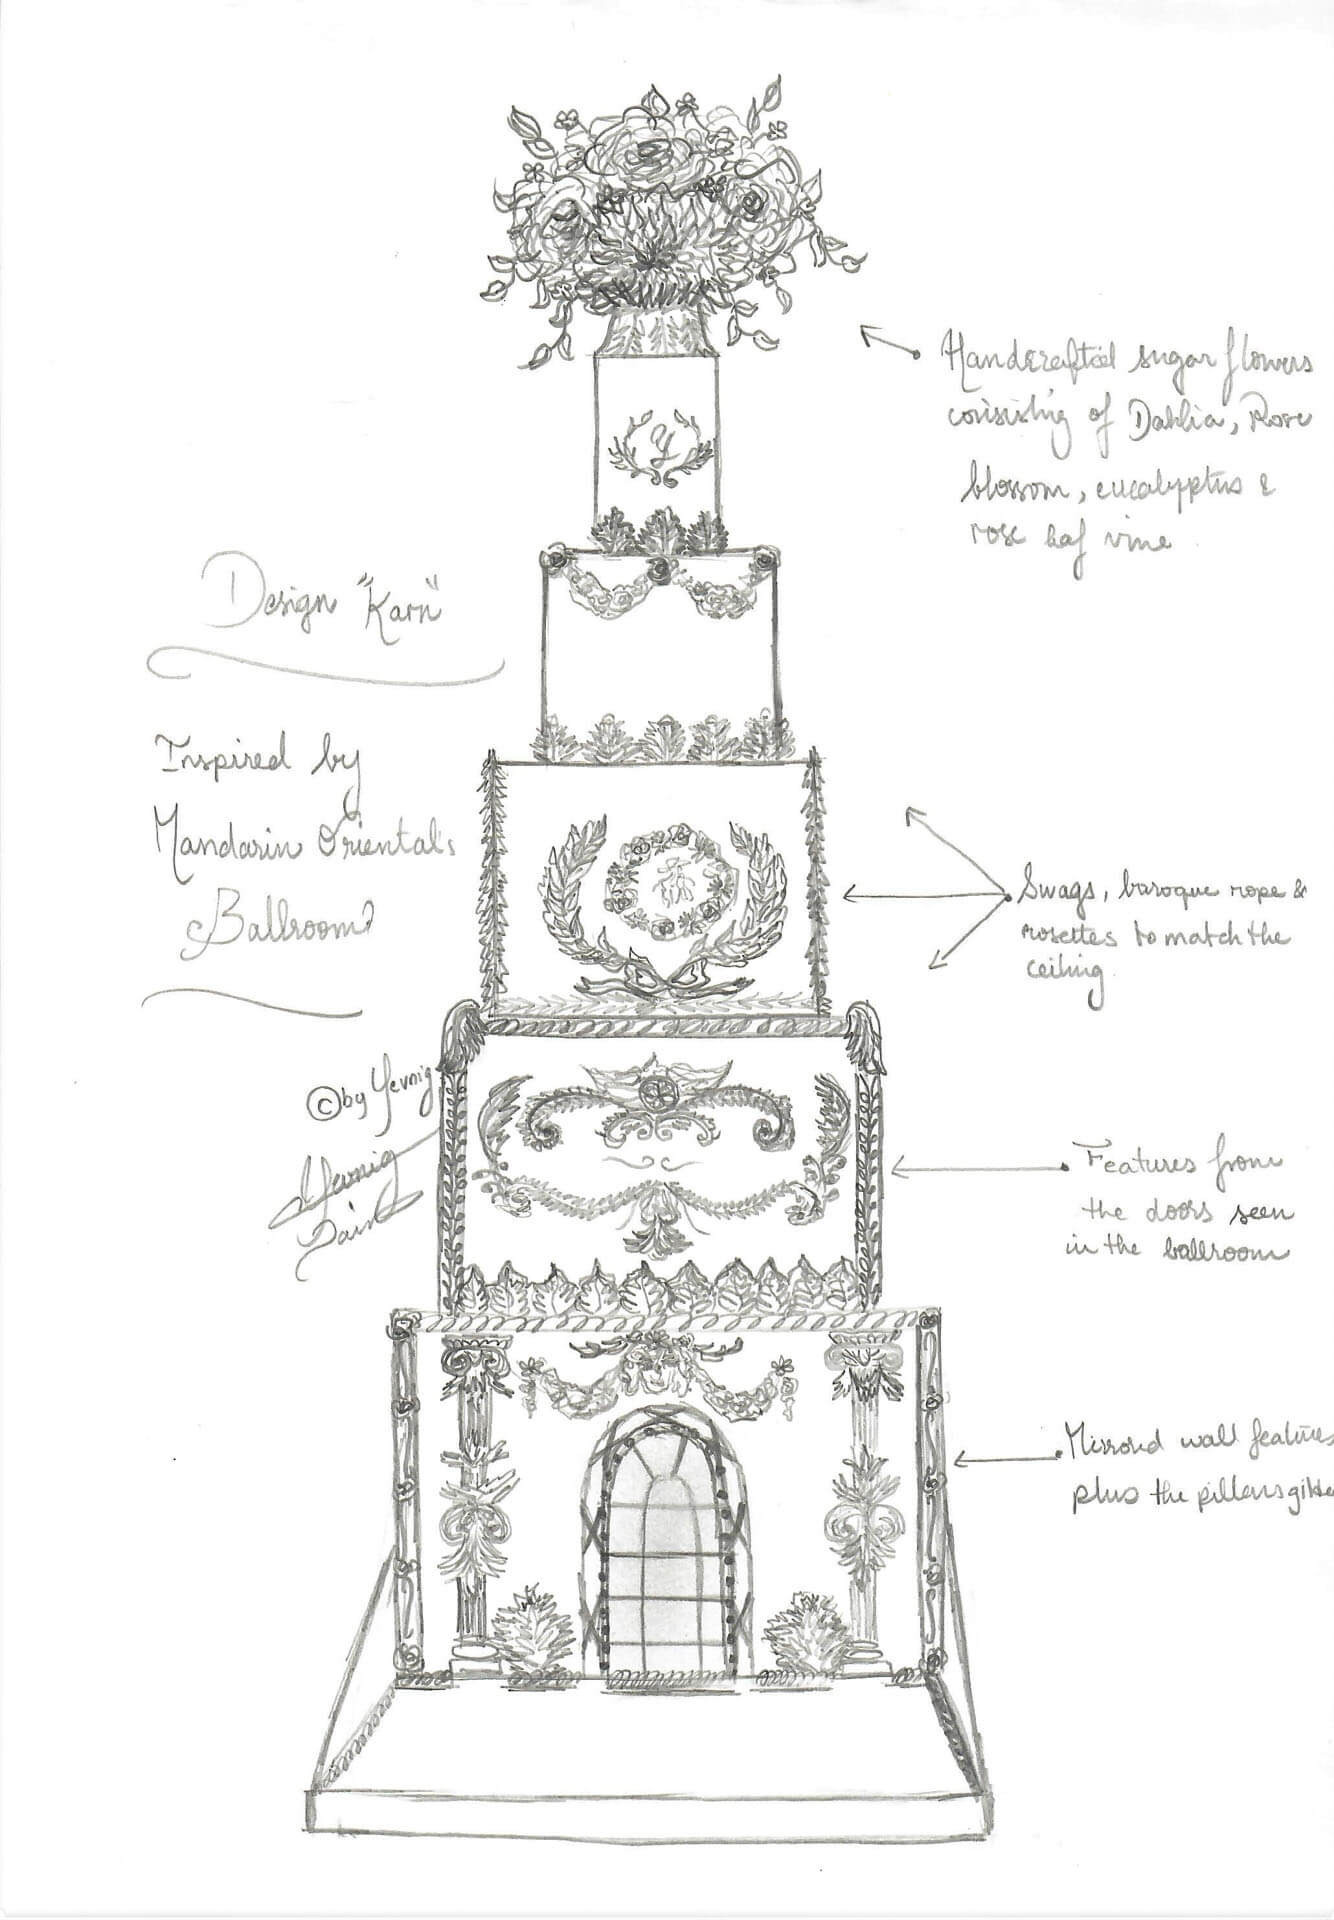 Handcrafted sugar flowers
consisting of Dahlia, Rose
blossom, eucalyptus &
rose leaf vine
Y
Design "Karn"
Inspired by
Mandarin Oriental's
Ballroom
Swags, baroque rope &
rosettes to match the
ceiling
© by Yevnig
Yevnig
Features from
the doors seen
in the ballroom
Mirrored wall features
plus the pillars